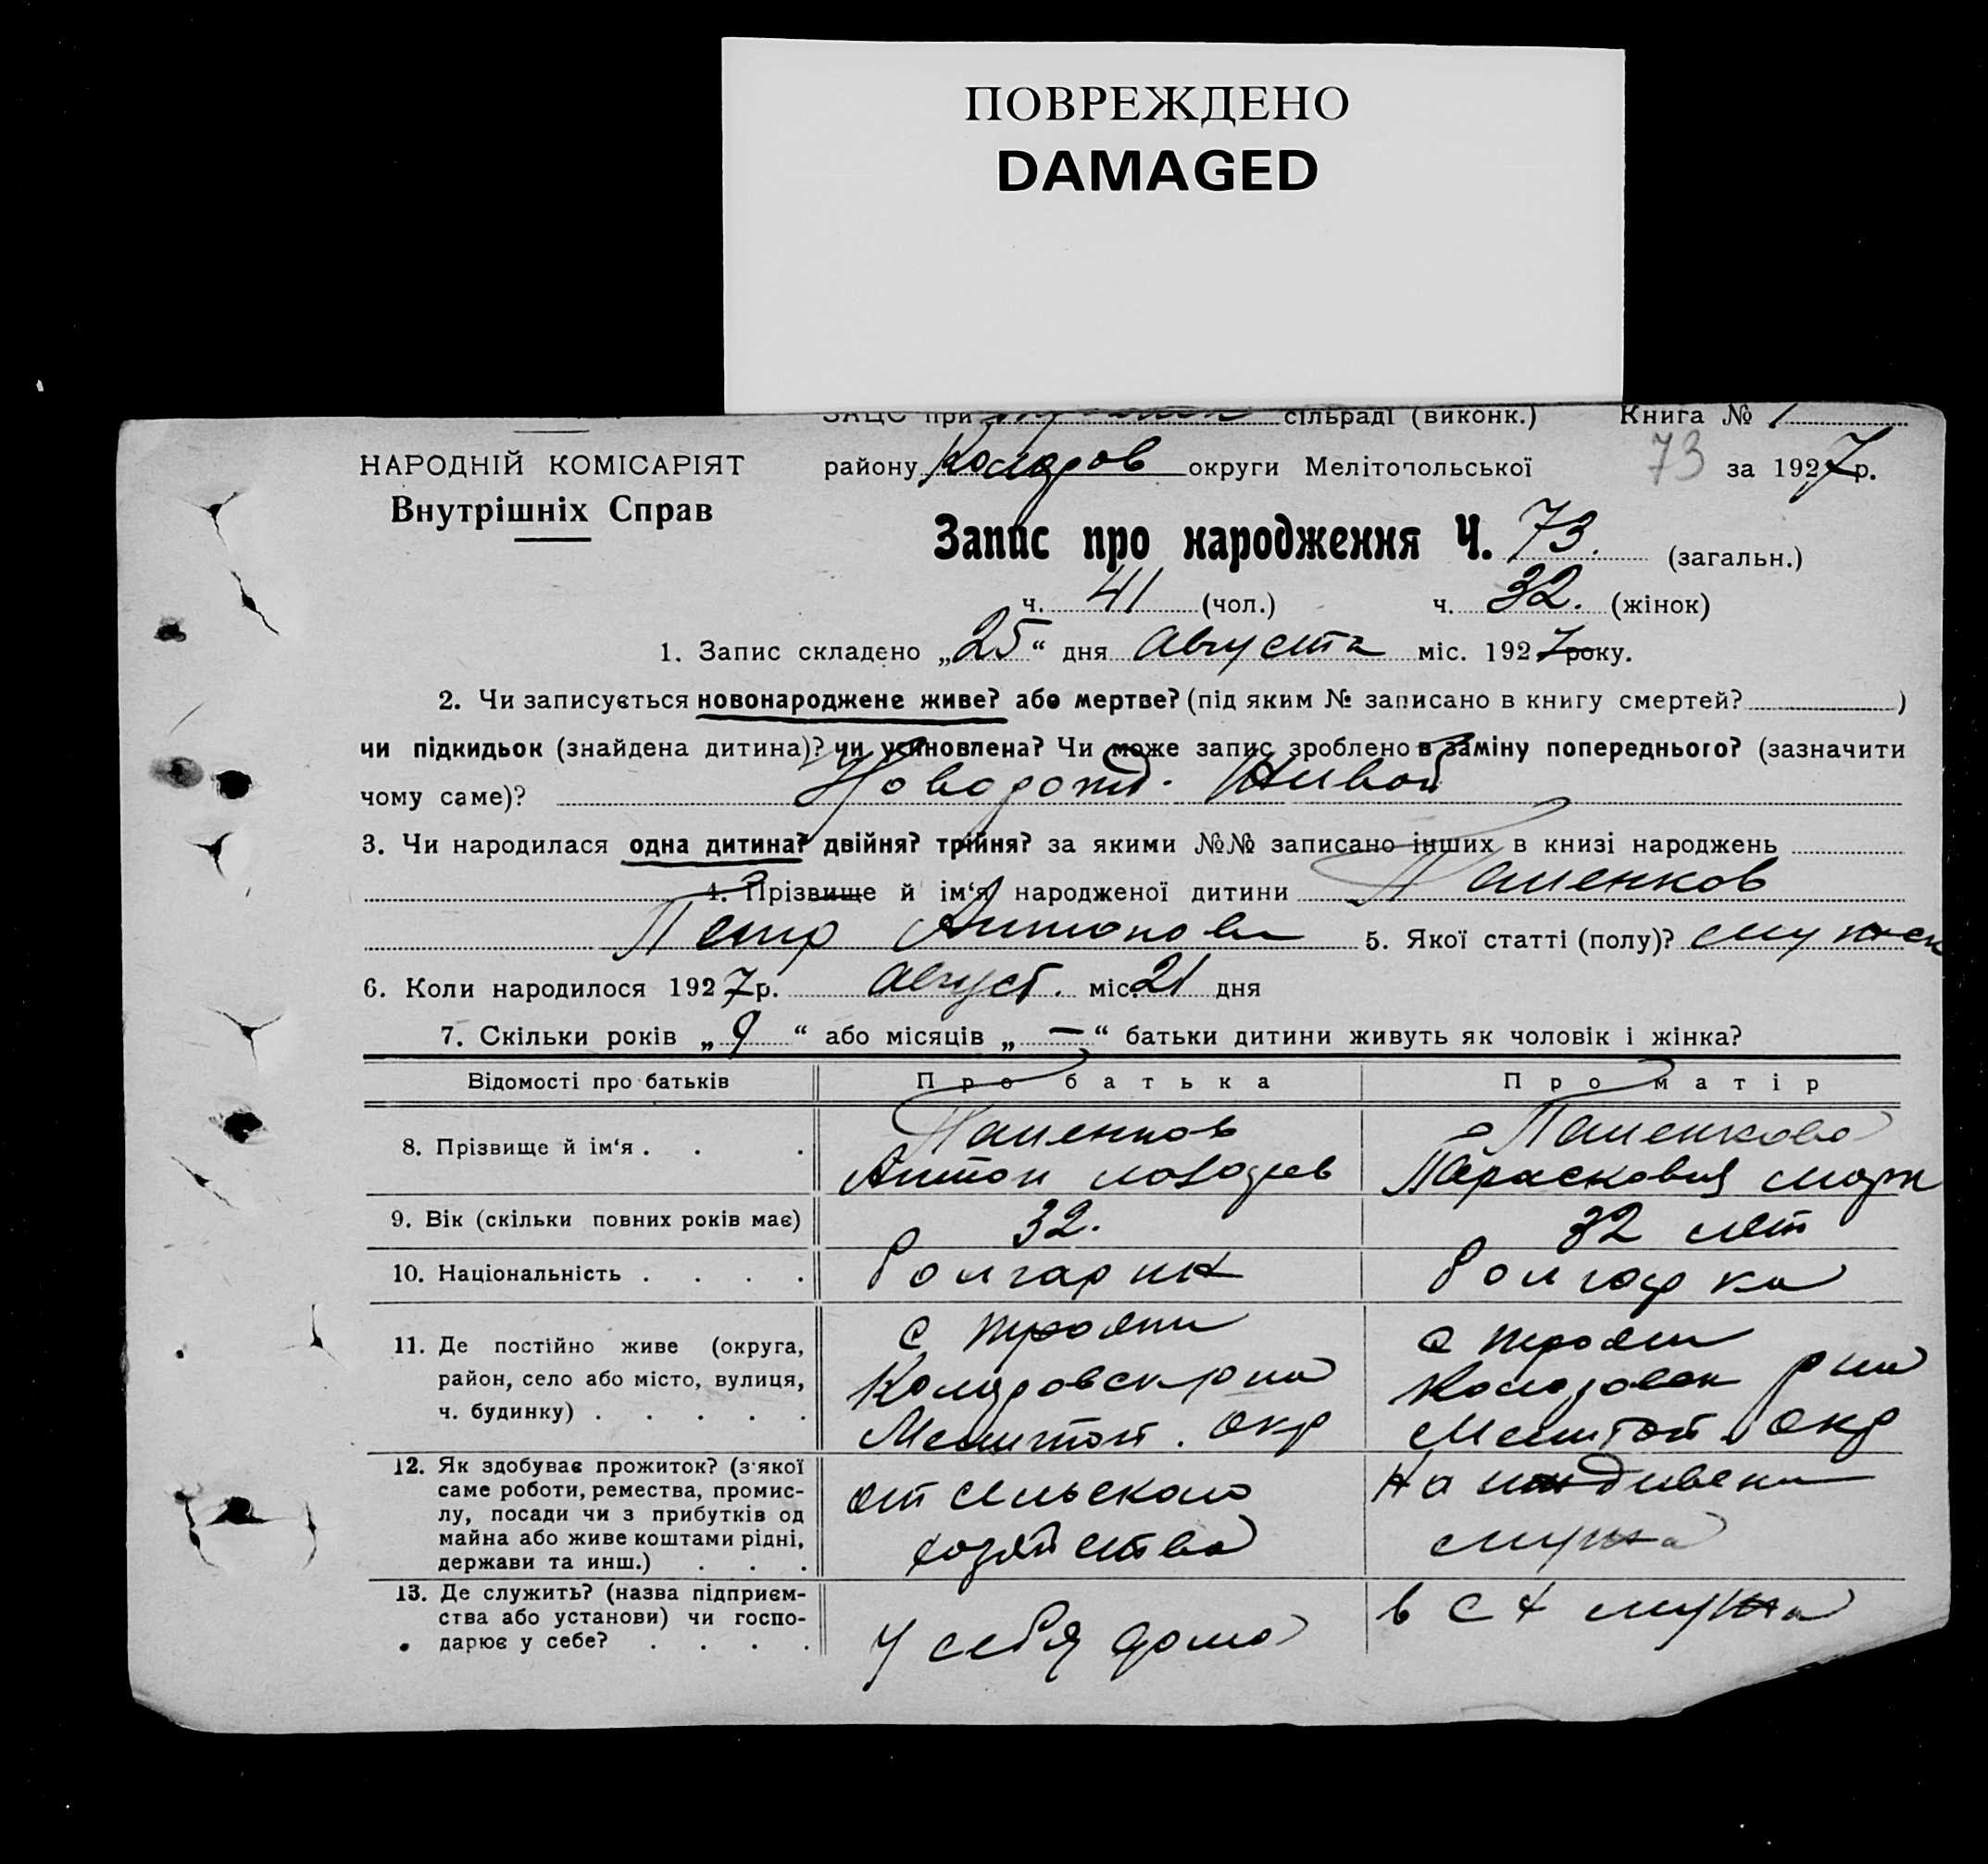 ПОВРЕЖДЕНО
DAMAGED
ЗАЦС при сільраді (виконк.) Книга № 1
НАРОДНІЙ КОМІСАРІЯТ
Внутрішніх Справ
району Коларов округи Мелітопольської 73 за 1927р.
Запис про народження Ч. 73. (загальн.)
ч. 41 (чол.) ч. 32. (жінок)
1. Запис складено „25“ дня Августа міс. 1927 року.
2. Чи записується новонароджене живе? або мертве? (під яким № записано в книгу смертей? )
чи підкидьок (знайдена дитина)? чи усиновлена? Чи може запис зроблено в заміну попереднього? (зазначити
чому саме)? Новорожд. Живой
3. Чи народилася одна дитина? двійня? трійня? за якими №№ записано інших в книзі народжень
4. Прізвище й ім‘я народженої дитини Паменков
Петр Антонов 5. Якої статті (полу)? мужск
6. Коли народилося 1927р. Август. міс. 21 дня
7. Скільки років „9“ або місяців „—“ батьки дитини живуть як чоловік і жінка?
Відомості про батьків Про батька Про матір
8. Прізвище й ім‘я . . . Паменков Паменкова
Антон Парасковия
9. Вік (скільки повних років має) 32. 32 лет
10. Національність . . . . болгарин болгарка
11. Де постійно живе (округа, с Трояни с Трояни
район, село або місто, вулиця, Коларовск р на Коларовск р на
ч. будинку) . . . . . Мелитоп. окр Мелитоп. окр
12. Як здобуває прожиток? (з якої
саме роботи, ремества, промис-
лу, посади чи з прибутків од
майна або живе коштами рідні,
держави та инш.) . . .
от сельского
хозяйства
на иждивени
мужа
13. Де служить? (назва підприєм-
ства або установи) чи госпо-
дарює у себе? . . . .
у себя дома
в с х мужа